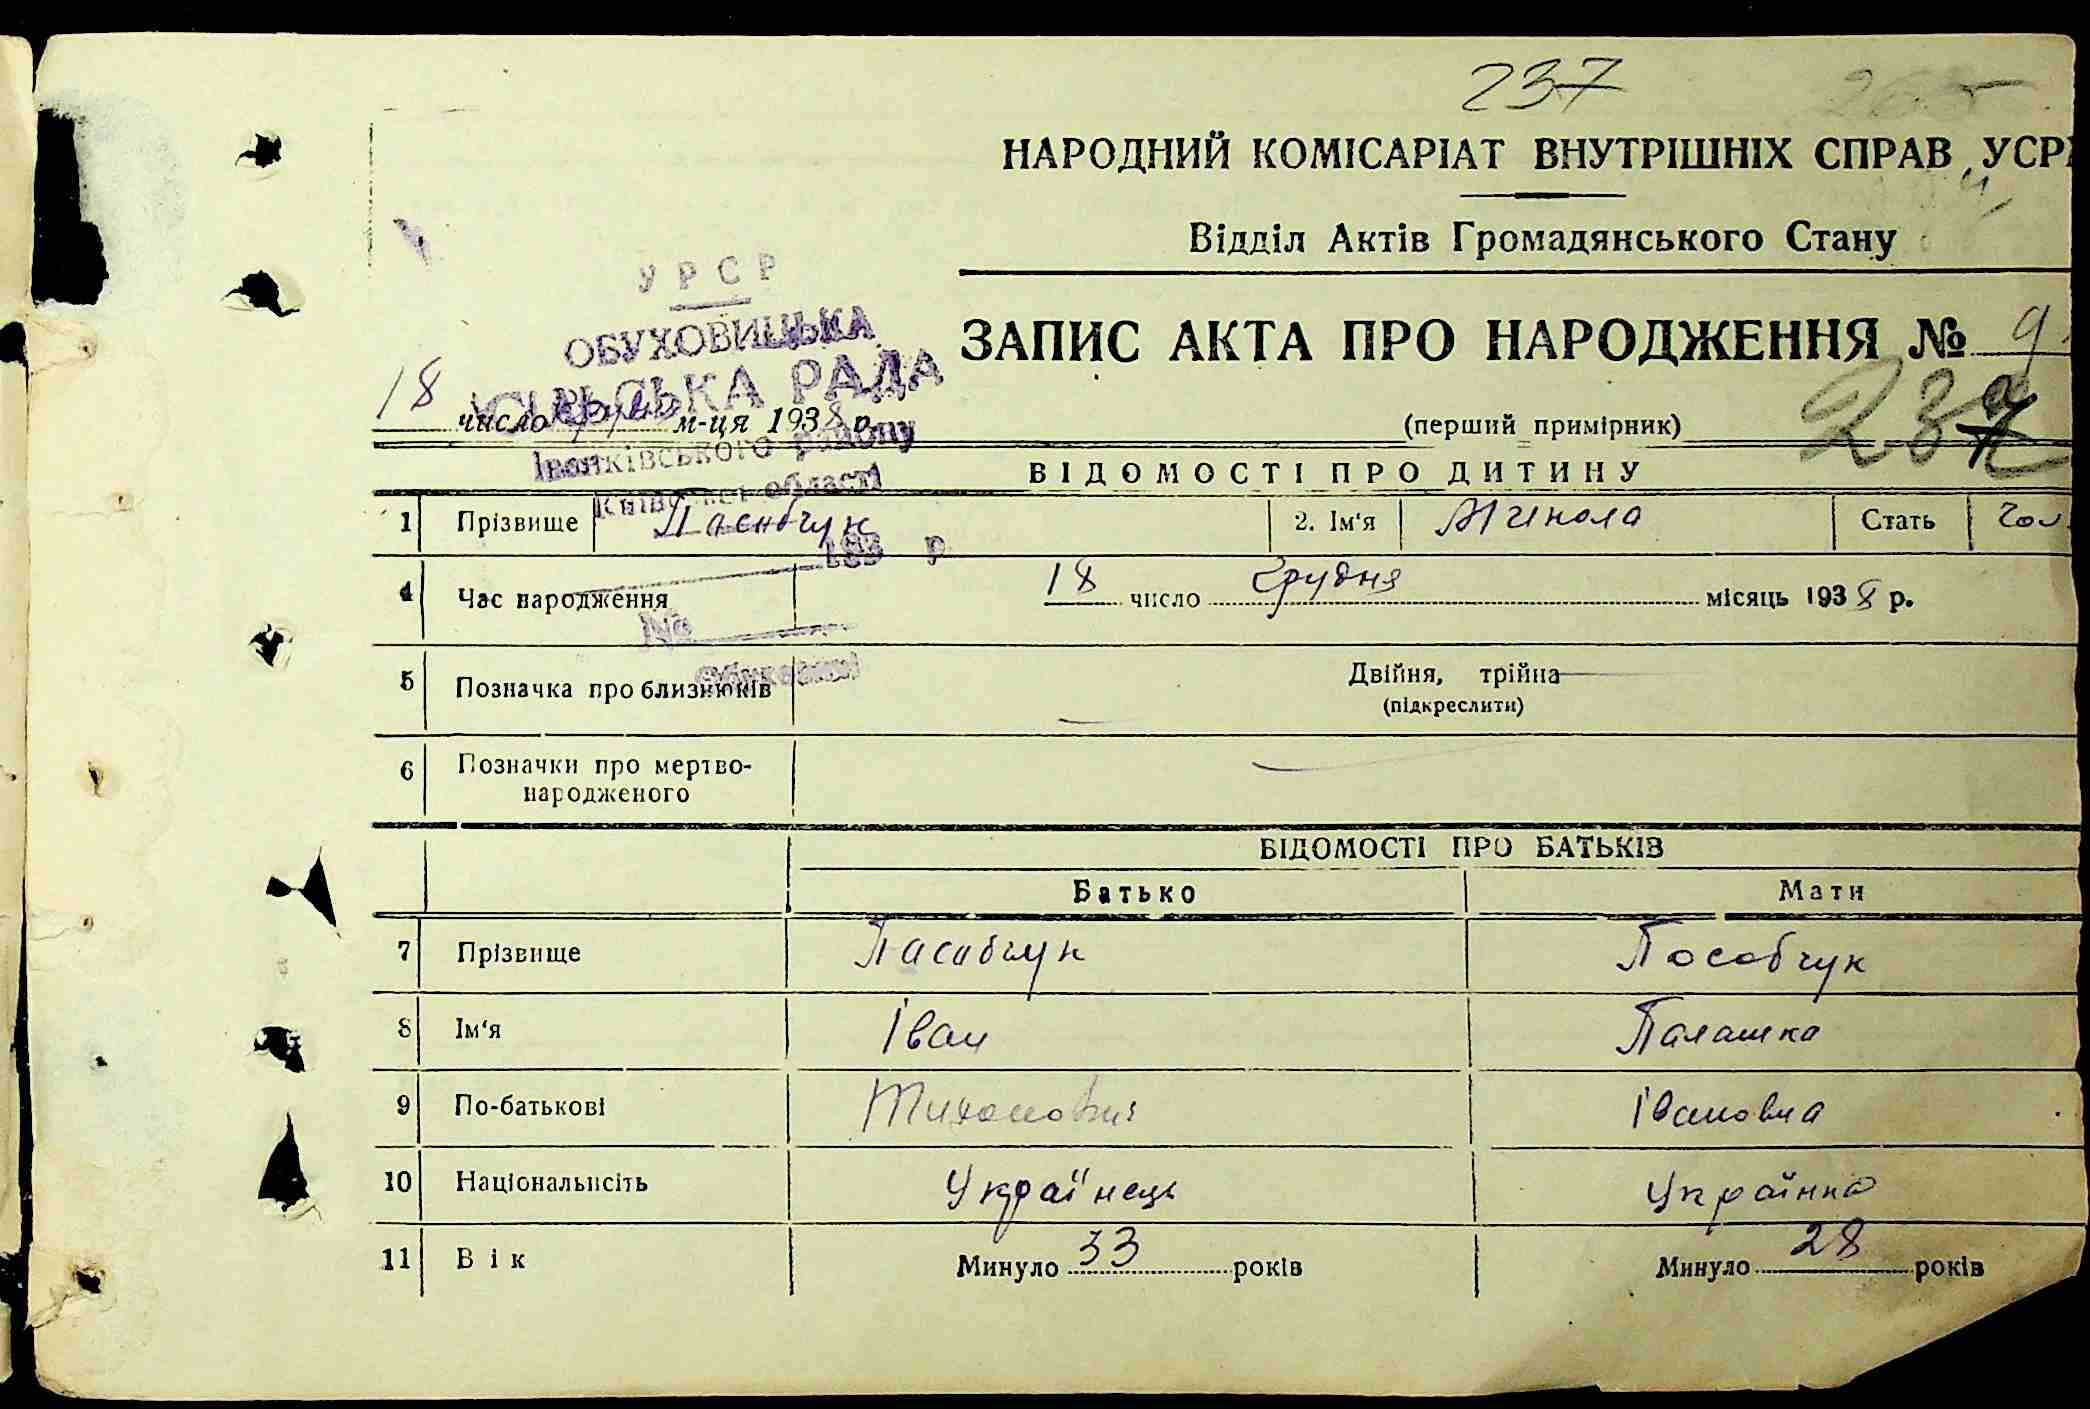 237
265
НАРОДНИЙ КОМІСАРІАТ ВНУТРІШНІХ СПРАВ УСР
Відділ Актів Громадянського Стану
УРСР
ОБУХОВИЦЬКА
СІЛЬСЬКА РАДА
Іванківського району
Київської області
193 р
№
ЗАПИС АКТА ПРО НАРОДЖЕННЯ № 9
237
18 число грудня м-ця 1938 р.
(перший примірник)
ВІДОМОСТІ ПРО ДИТИНУ
1 Прізвище 2. Ім'я Микола Стать чол.
4 Час народження 18 число грудня місяць 1938 р.
5 Позначка про близнюків Двійня, трійна
(підкреслити)
6 Позначки про мертво-
народженого
ВІДОМОСТІ ПРО БАТЬКІВ
Батько Мати
7 Прізвище Пасабчук Пособчук
8 Ім'я Іван Палашка
9 По-батькові Івановна
10 Національність Українець Українка
11 Вік Минуло 33 років Минуло 28 років